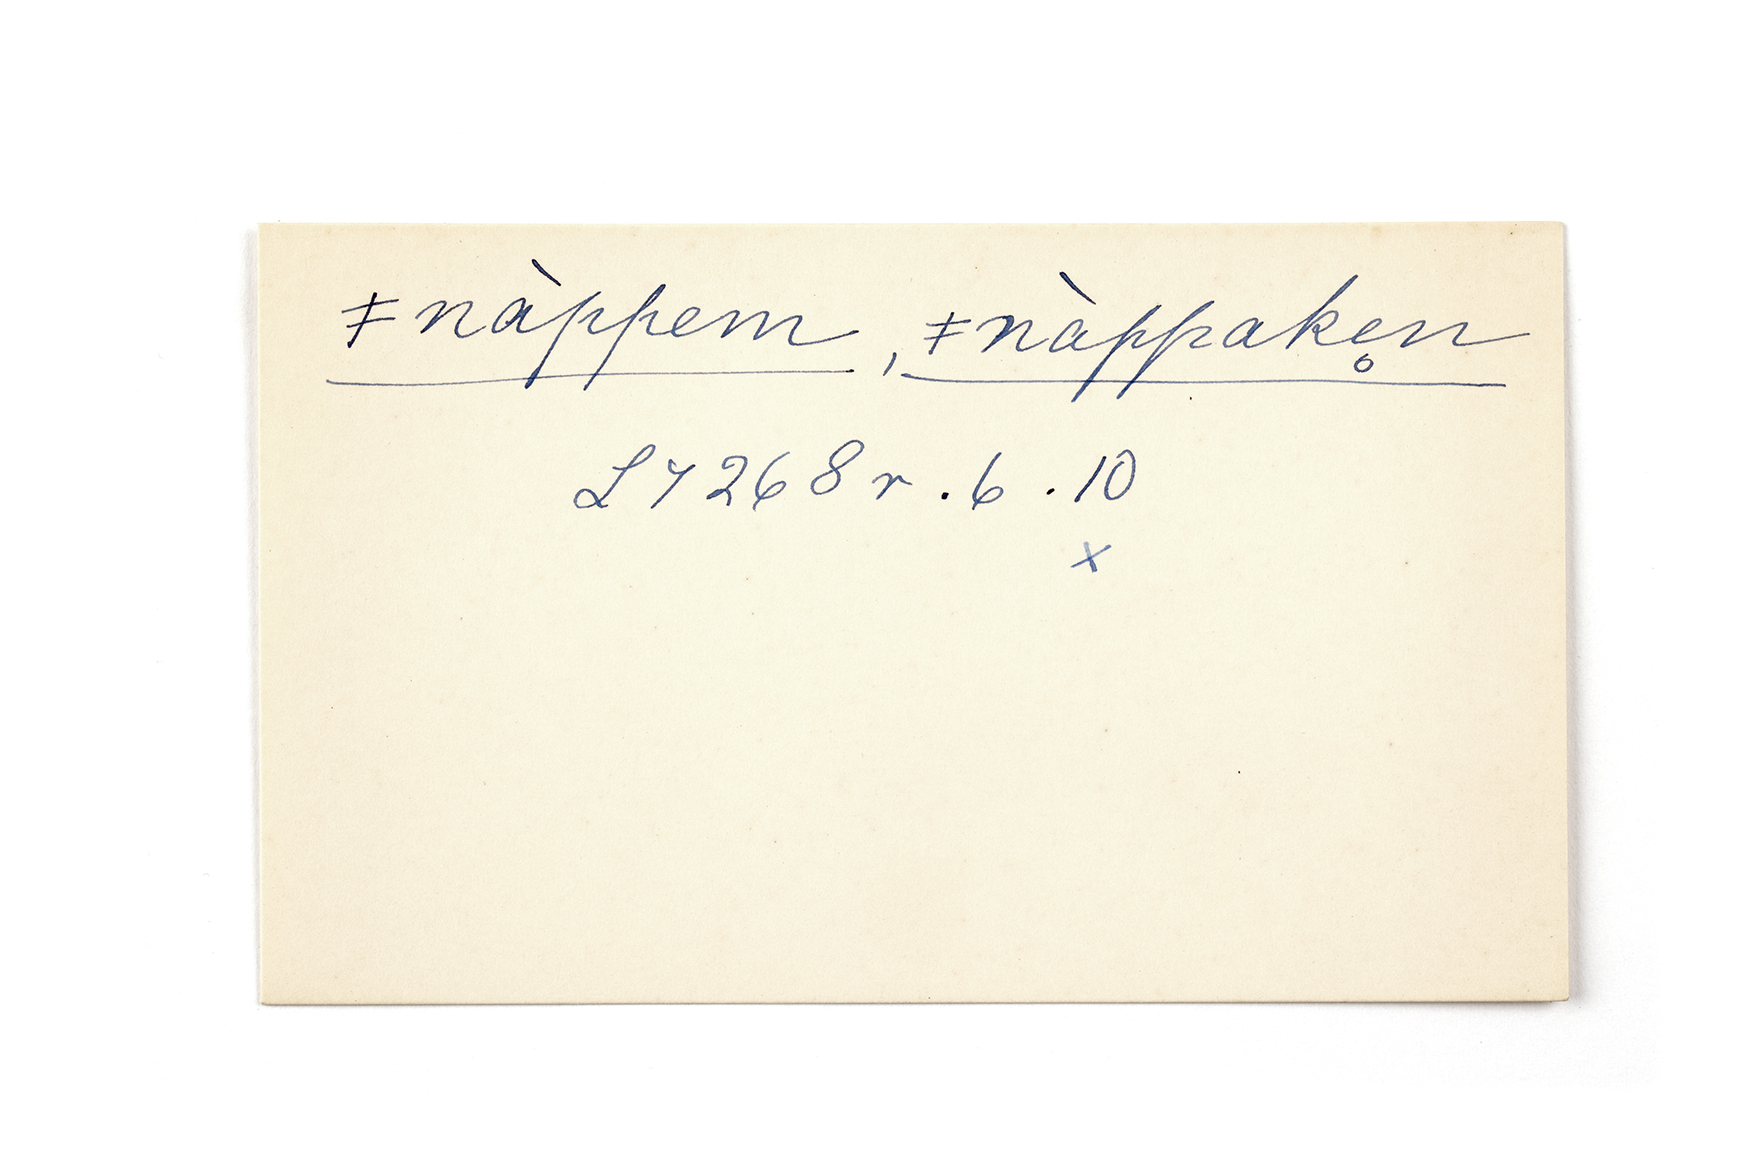 ‡nàppem, ‡nàppake̥n
LY268r.6.10
x